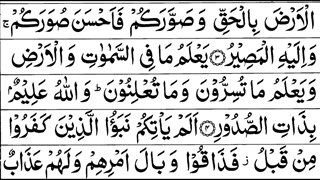 الْاَرْضَ بِالْحَقِّ وَصَوَّرَكُمْ فَاَحْسَنَ صُوَرَكُمْ ۚ
وَاِلَيْهِ الْمَصِيْرُ ﴿۳﴾ يَعْلَمُ مَا فِى السَّمٰوٰتِ وَالْاَرْضِ
وَيَعْلَمُ مَا تُسِرُّوْنَ وَمَا تُعْلِنُوْنَ ؕ وَاللّٰهُ عَلِيْمٌۢ
بِذَاتِ الصُّدُوْرِ ﴿۴﴾ اَلَمْ يَاْتِكُمْ نَبَؤُا الَّذِيْنَ كَفَرُوْا
مِنْ قَبْلُ ؗ فَذَاقُوْا وَبَالَ اَمْرِهِمْ وَلَهُمْ عَذَابٌ